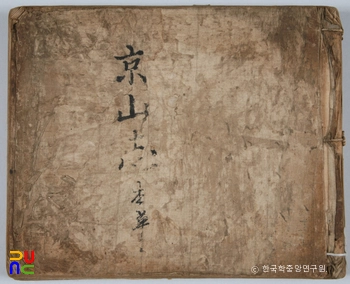 京山志
© 한국학중앙연구원